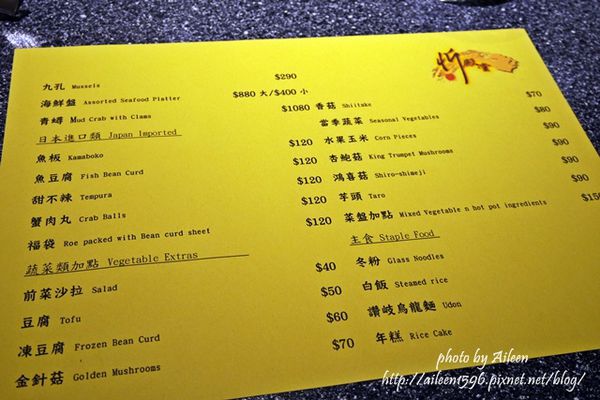 九孔 Mussels $290
海鮮盤 Assorted Seafood Platter $880 大/$400 小
青蟳 Mud Crab with Clams $1080
日本進口類 Japan Imported
魚板 Kamaboko $120
魚豆腐 Fish Bean Curd $120
甜不辣 Tempura $120
蟹肉丸 Crab Balls $120
福袋 Roe packed with Bean curd sheet $120
蔬菜類加點 Vegetable Extras
前菜沙拉 Salad $40
豆腐 Tofu $50
凍豆腐 Frozen Bean Curd $60
金針菇 Golden Mushrooms $70
香菇 Shiitake $70
當季蔬菜 Seasonal Vegetables $80
水果玉米 Corn Pieces $90
杏鮑菇 King Trumpet Mushrooms $90
鴻喜菇 Shiro-shimeji $90
芋頭 Taro $90
菜盤加點 Mixed Vegetable n hot pot ingredients
主食 Staple Food
冬粉 Glass Noodles
白飯 Steamed rice
讚岐烏龍麵 Udon
年糕 Rice Cake
photo by Aileen
http://aileen1596.pixnet.net/blog/